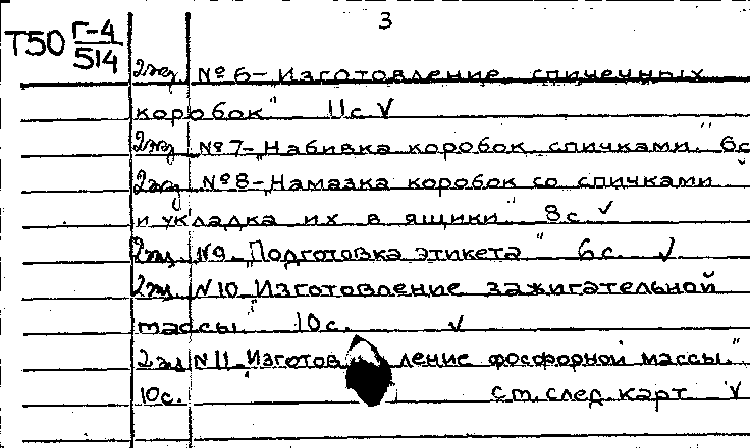 3
Т50 Г-4/514
2 экз. № 6 - „Изготовление спичечных
коробок" 11 с. V
2 экз. № 7 - „Набивка коробок спичками" 6 с
2 экз. № 8 - „Намазка коробок со спичками
и укладка их в ящики" 8 с. V
2 экз. N 9 „Подготовка этикета" 6 с. V
2 экз. N 10 „Изготовление зажигательной
массы" 10 с. V
2 экз. N 11 „Изготовление фосфорной массы"
10 с. см. след. карт V